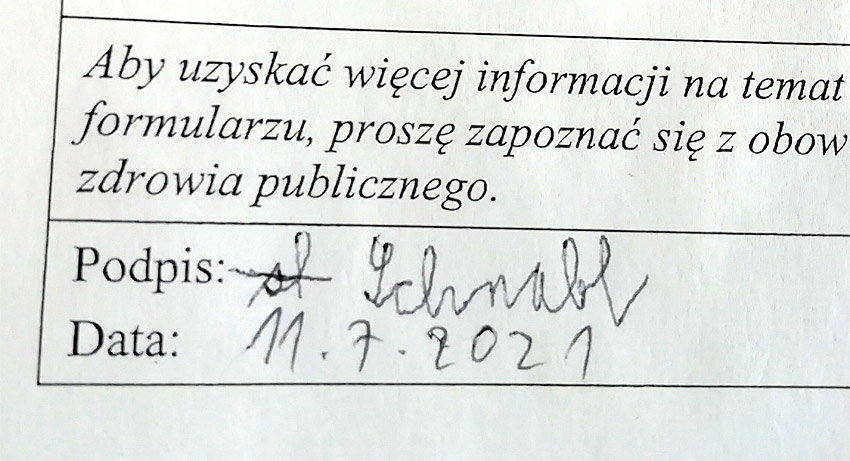 Aby uzyskać więcej informacji na temat
formularzu, proszę zapoznać się z obow
zdrowia publicznego.
Podpis: Schnabl
Data: 11.7.2021